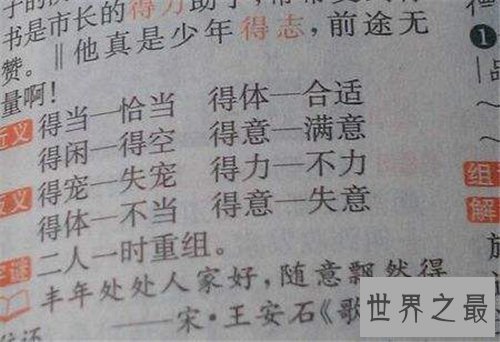 书是市长的得力助手,
赞。‖他真是少年得志,前途无
量啊!
近义 得当—恰当 得体—合适
得闲—得空 得意—满意
反义 得宠—失宠 得力—不力
得体—不当 得意—失意
字谜 二人一时重组。
丰年处处人家好,随意飘然得
——宋·王安石《歌
❶
组
解
世界之最